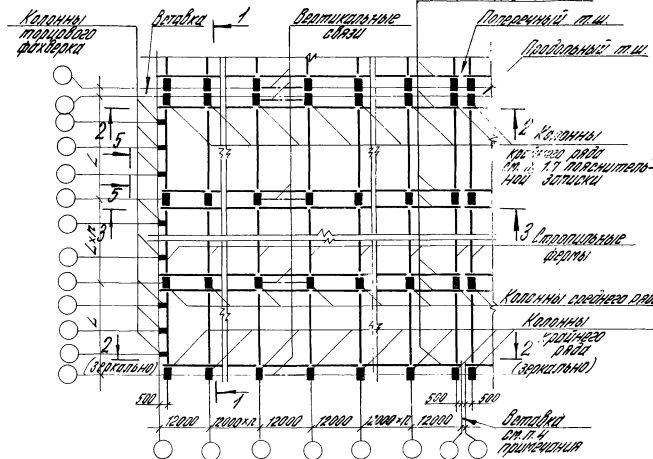 Колонны
торцового
фахверка
Вставка
1
Вертикальные
связи
Поперечный т.ш.
Продольный т.ш.
2
5
L
5
3
L×n
L
2
(зеркально)
2 Колонны
ряда
см. п. 1.7 пояснитель-
ной записки
3 Стропильные
фермы
Колонны среднего ряда
Колонны
крайнего
2 ряда
(зеркально)
500
1
500
500
12000
12000×n
12000
12000
12000×n
12000
Вставка
см. п. 4
примечания